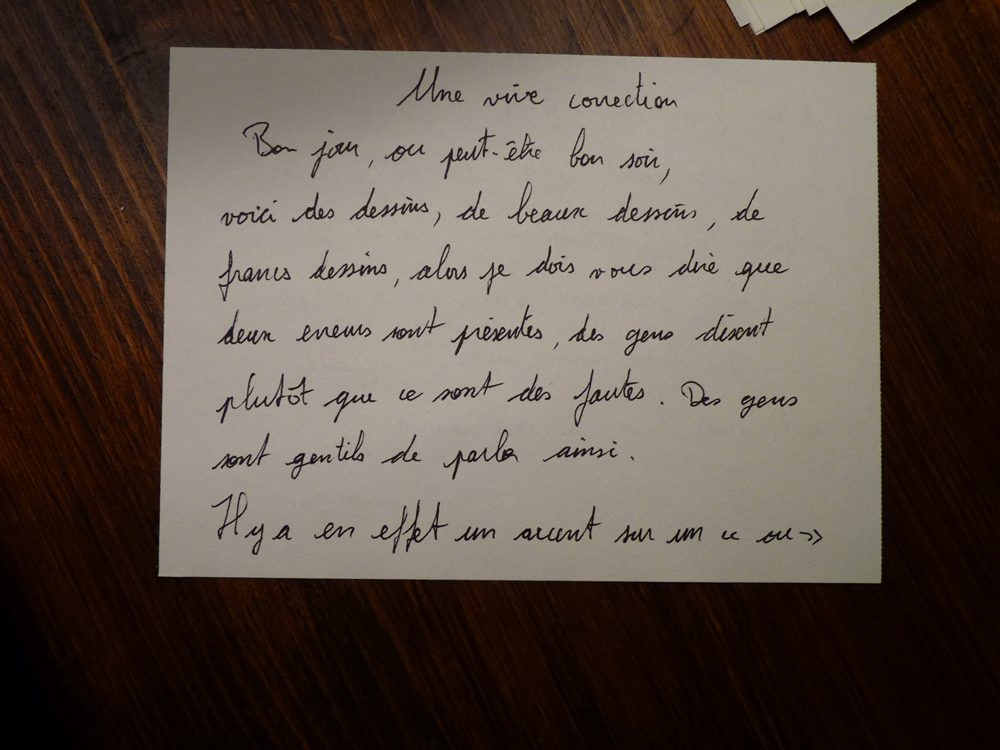 Une vive correction
Bon jour, ou peut-être bon soir,
voici des dessins, de beaux dessins, de
francs dessins, alors je dois vous dire que
deux erreurs sont présentes, des gens disent
plutôt que ce sont des fautes. Des gens
sont gentils de parler ainsi.
Il y a en effet un accent sur un « ou »